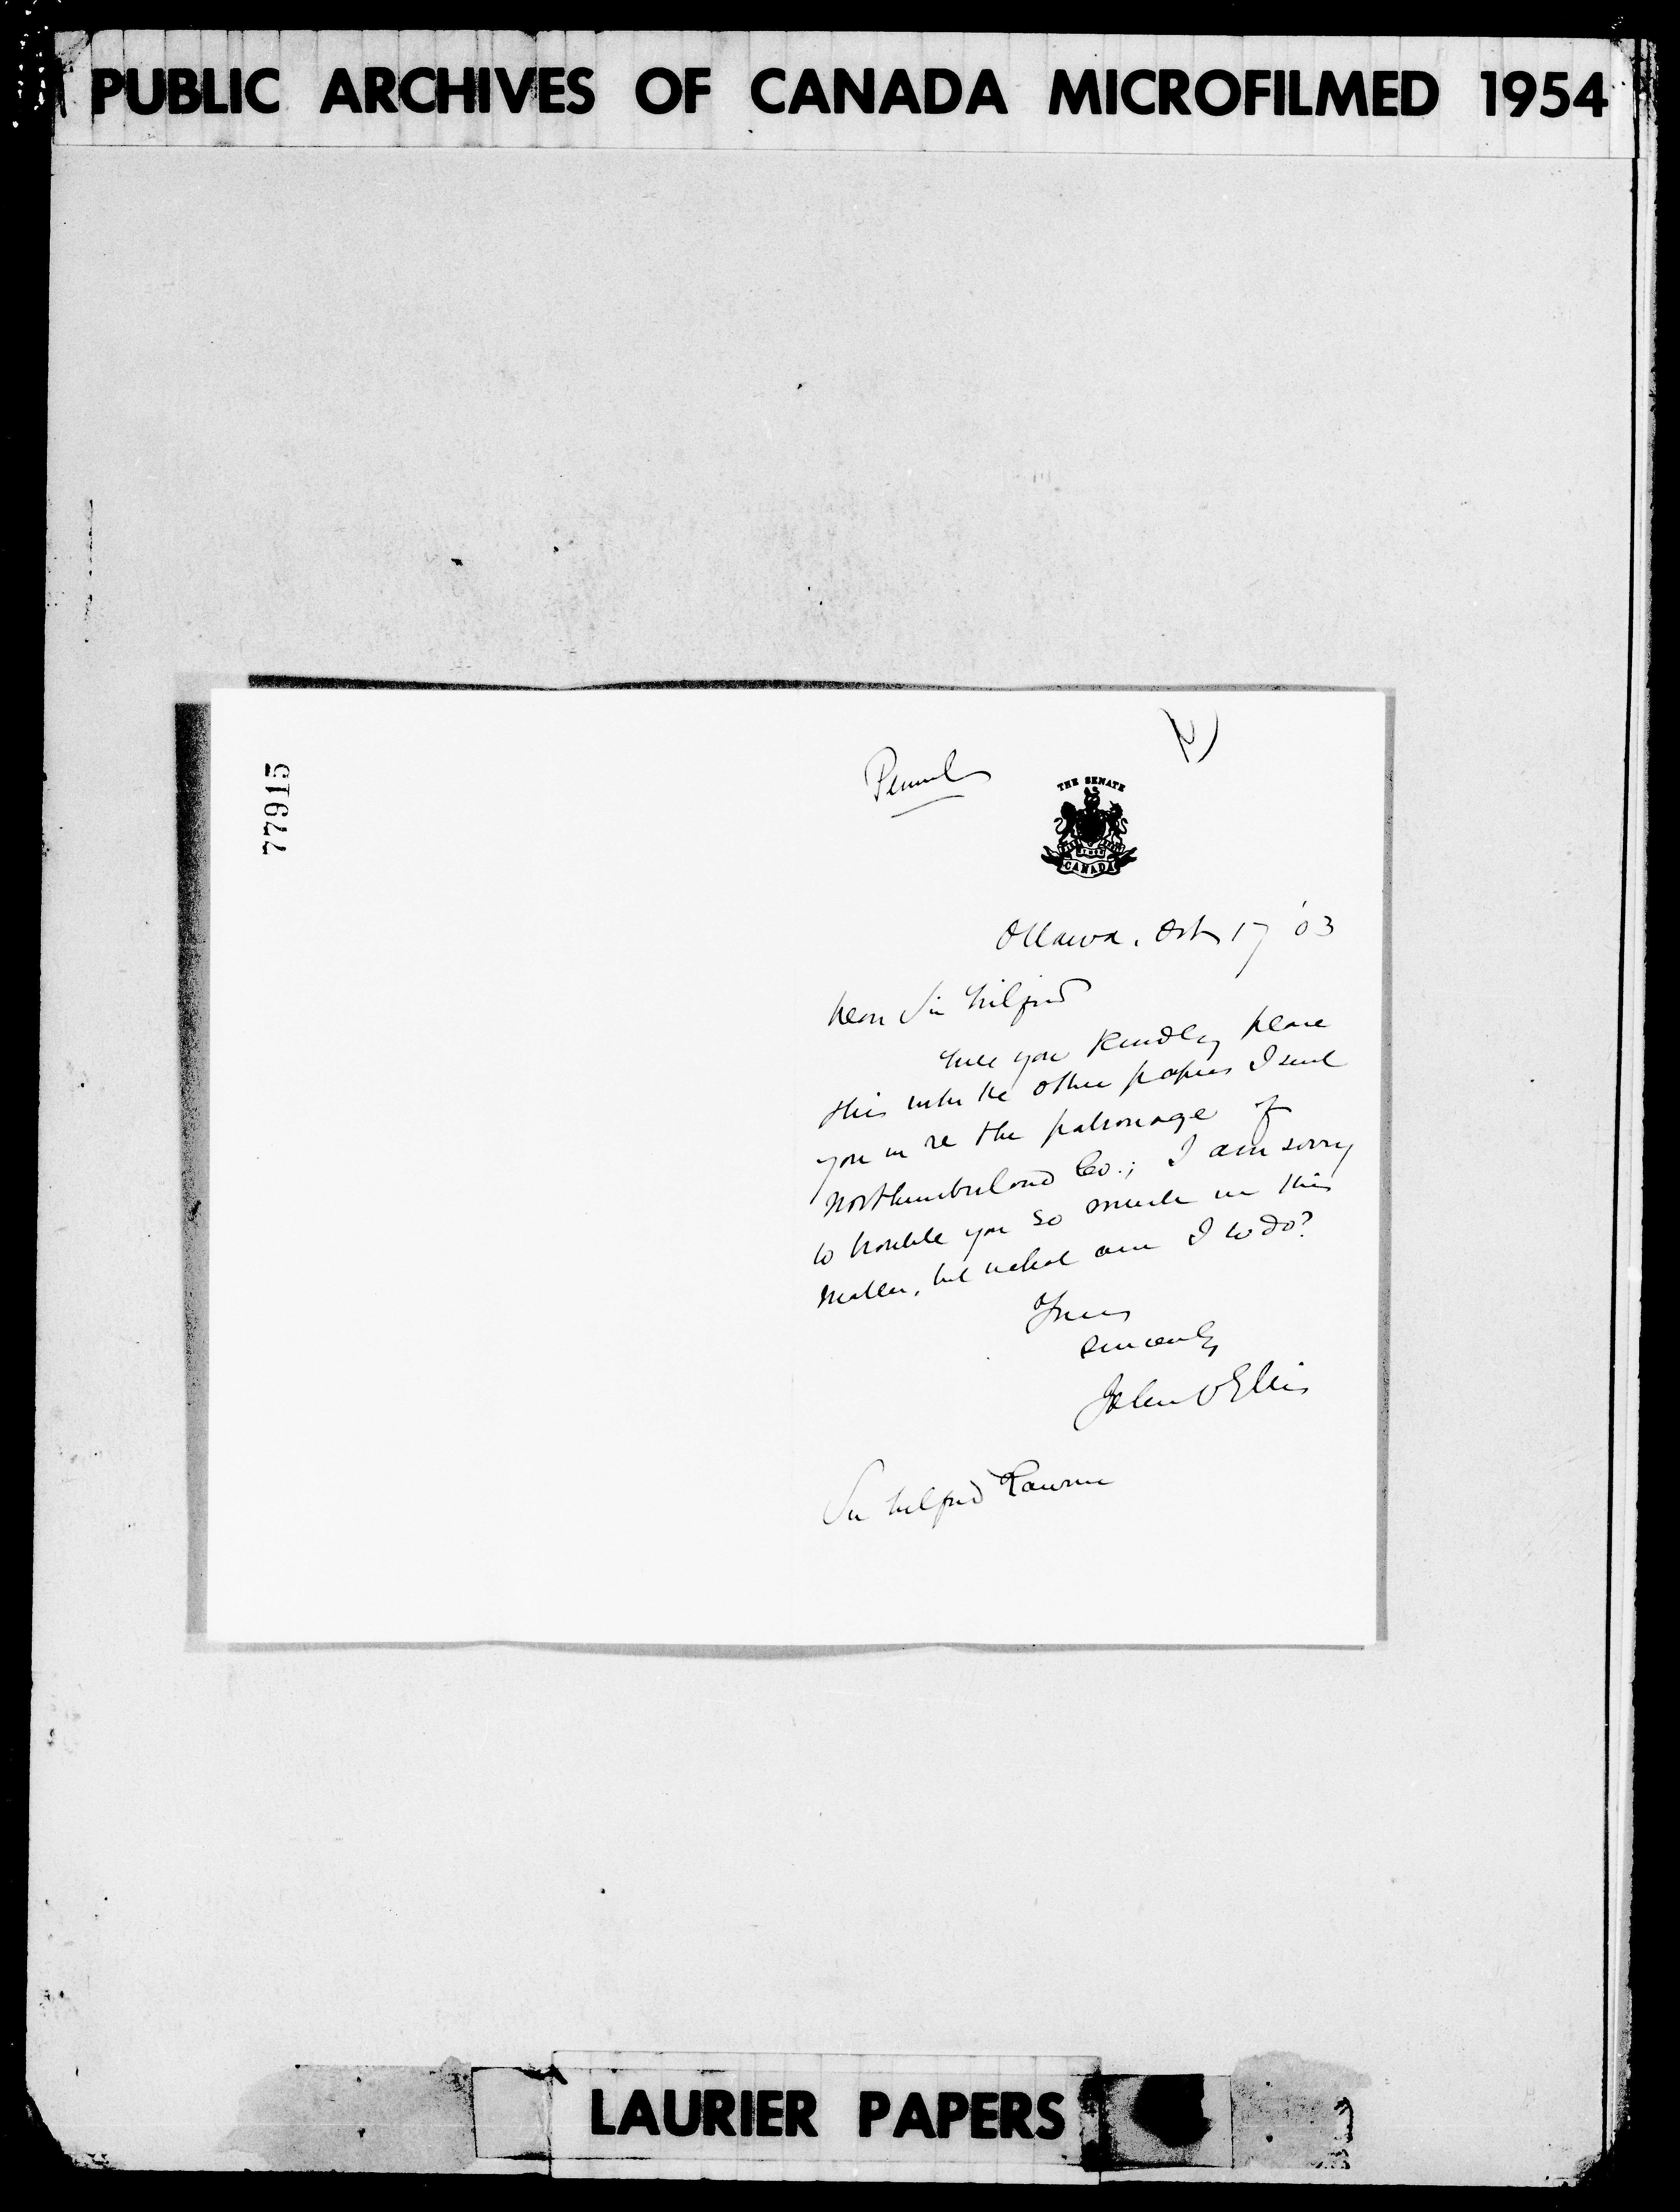 PUBLIC ARCHIVES OF CANADA MICROFILMED 1954
77915
Personal
THE SENATE
CANADA
Ottawa. Oct 17 '03
Dear Sir Wilfrid
Will you kindly place
this with the other papers I sent
you in re the patronage of
Northumberland Co.; I am sorry
to trouble you so much in this
matter, but what am I to do?
Yours
Sincerely
John V Ellis
Sir Wilfrid Laurier
LAURIER PAPERS